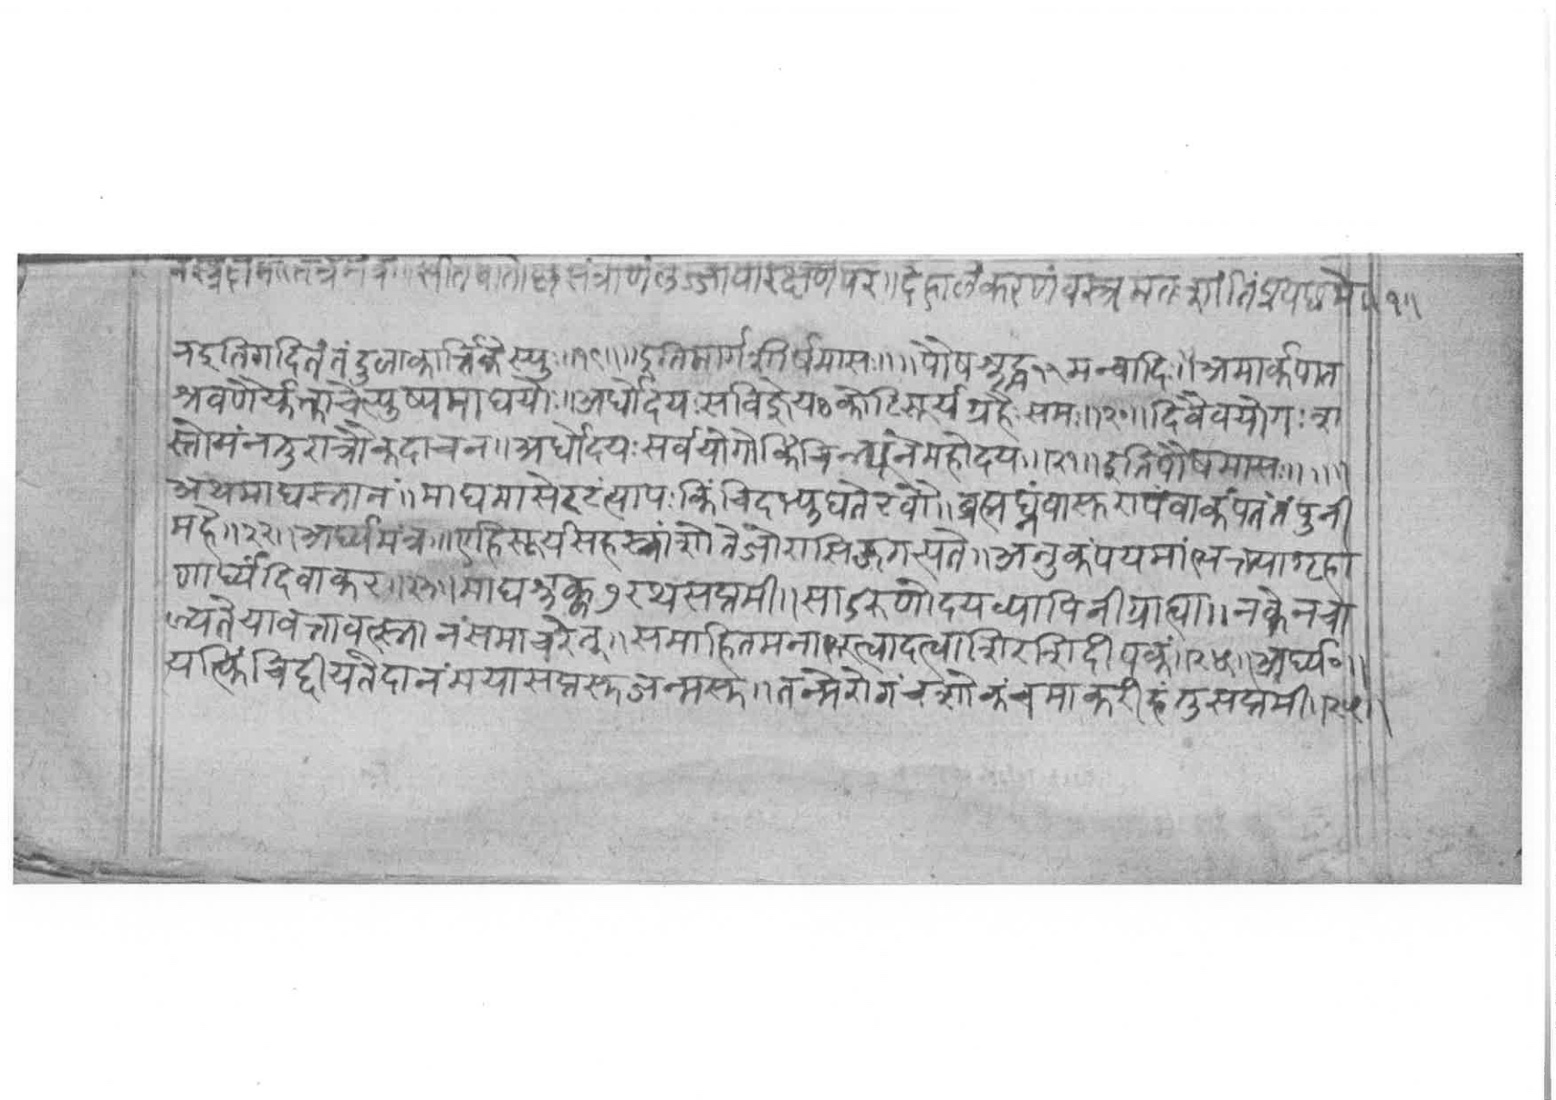 वस्त्रदानमंत्रः॥ शीतवातोष्णसंत्राणं लज्जाया रक्षणं परं॥ देहालंकरणं वस्त्रमतः शांतिं प्रयच्छ मे॥१॥
नइतिगदितंतंदुलाकार्त्तिकैस्युः॥१९॥॥इतिमार्गशीर्षमासः॥॥पौषशुद्ध११मन्वादिः॥अमार्कपात
श्रवणैर्युक्ताचेत्पुष्यमाघयोः॥अर्धोदयःसविज्ञेयःकोटिसूर्यग्रहैःसमः॥२०॥दिवैवयोगःशा
स्तोयंनतुरात्रौकदाचन॥अर्धोदयःसर्वयोगोकिंचिन्न्यूनेमहोदयः॥२१॥इतिपौषमासः॥॥॥
अथमाघस्नानं॥माघमासेरटंत्यापःकिंचिदभ्युद्यतेरवौ॥ब्रह्मघ्नंवासुरापंवाकंपतंतंपुनी
महे॥२२॥अर्घ्यमंत्रः॥एहिसूर्यसहस्त्रांशोतेजोराशिजगत्पते॥अनुकंपयमांभक्त्यागृहा
णार्घ्यंदिवाकर॥२३॥माघशुक्ल७रथसप्तमी॥साऽरुणोदयव्यापिनीग्राह्या॥नकेनचा
ल्यतेयावत्तावत्स्नानंसमाचरेत्॥समाहितमनाभूत्वादत्वाशिरशिदीपकं॥२४॥अर्घ्य०॥
यत्किंचिद्दीयतेदानंमयासप्तसुजन्मसु॥तन्मेरोगंचशोकंचमाकरीहंतुसप्तमी॥२५॥